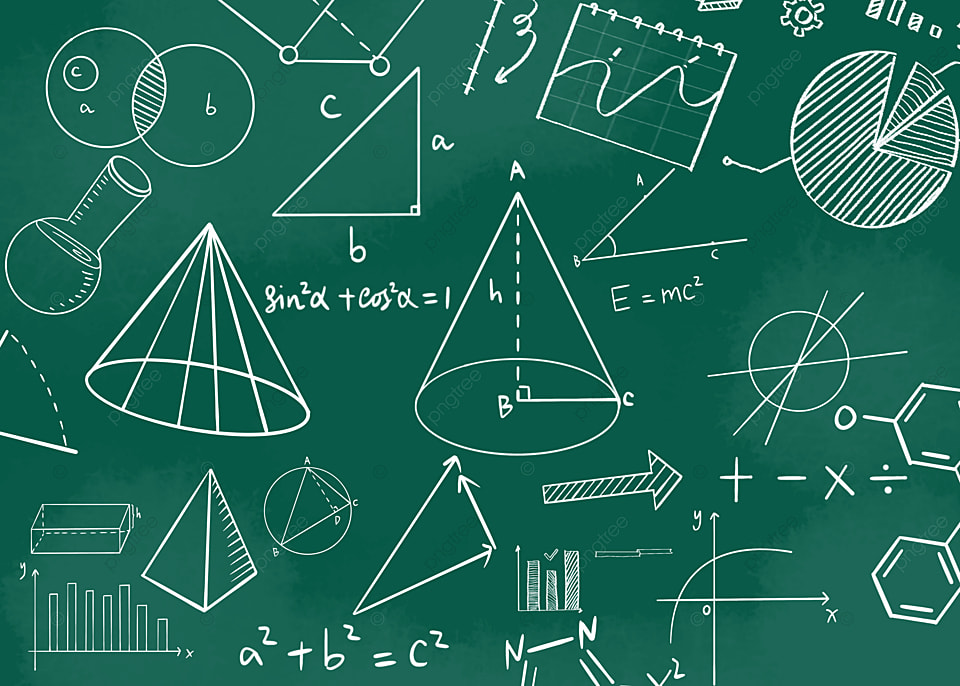 c
a
b
c
a
b
sin²α + cos²α = 1
A
h
B
C
A
B
C
E = mc²
O
+ − × ÷
h
A
B
D
C
y
x
a² + b² = c²
y
o
x
N
N